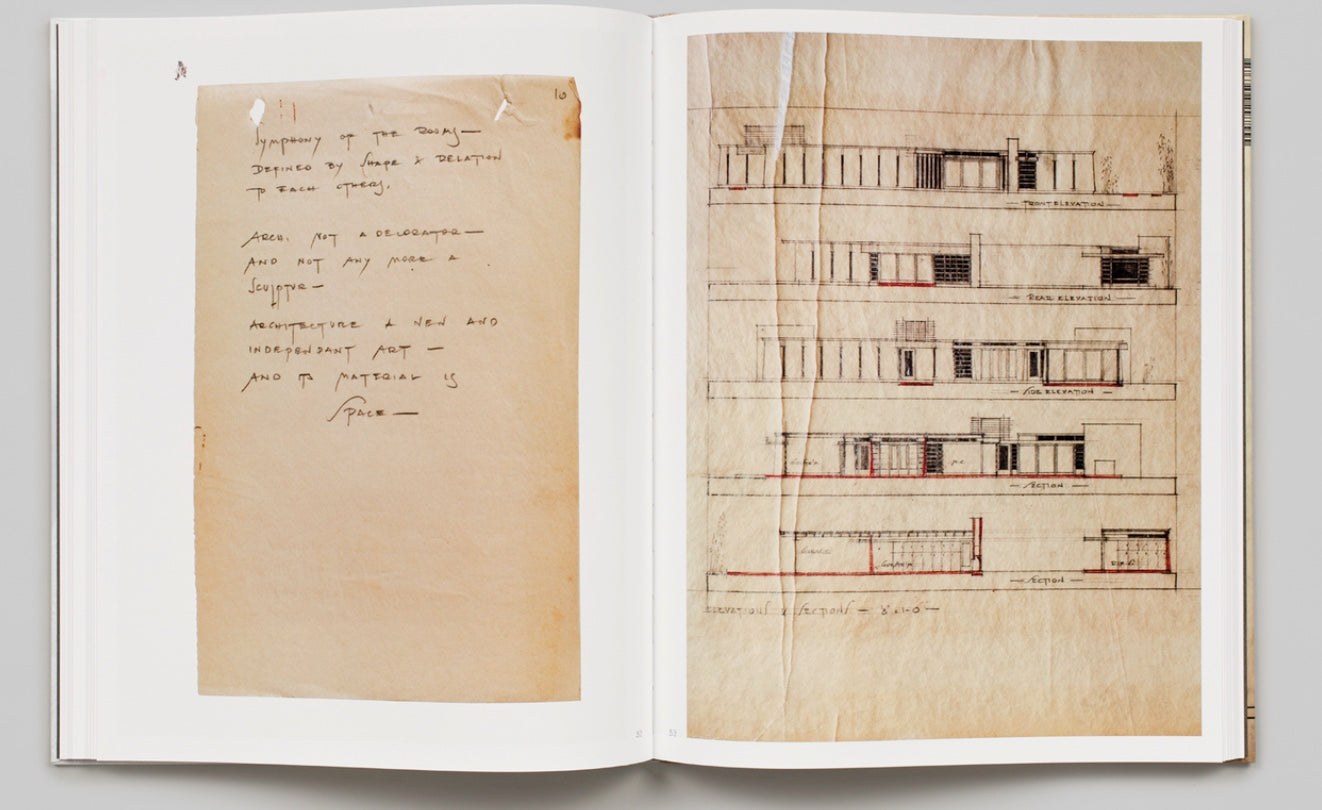 10
Symphony of the Rooms—
Defined by Shape & Relation
to each others.
Arch. not a decorator—
and not any more a
Sculptur—
Architecture a new and
independant art —
and its material is
Space —
52
— Front Elevation —
— Rear Elevation —
— Side Elevation —
— Section —
— Section —
Elevations & Sections —
53